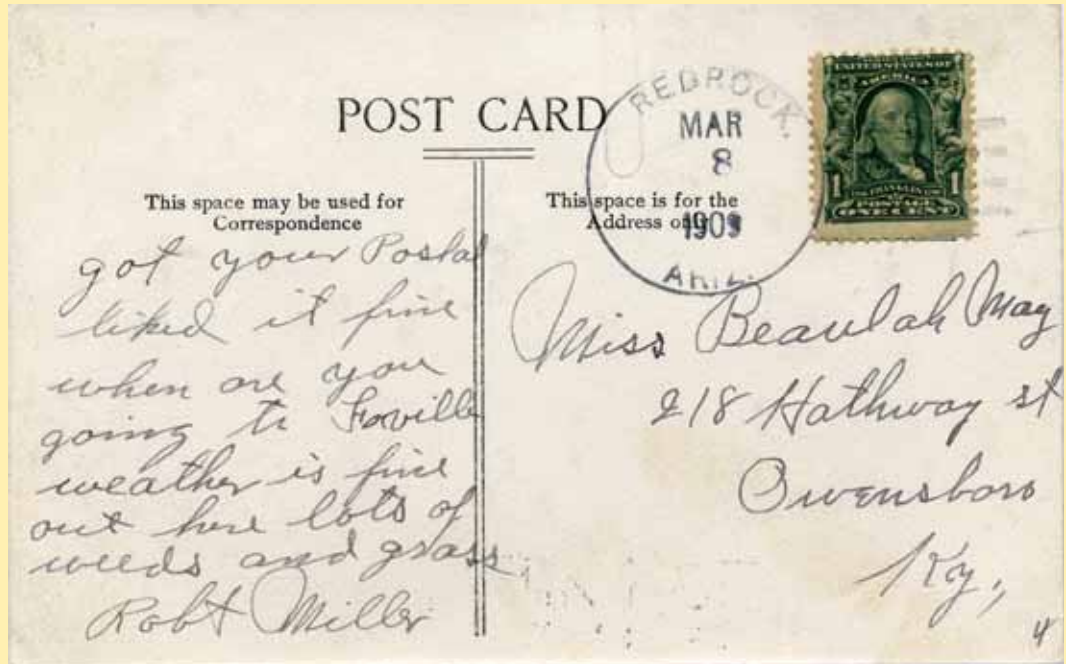 POST CARD
This space may be used for
Correspondence
This space is for the
Address only
REDROCK.
MAR
8
1909
ARIZ.
UNITED STATES OF
AMERICA
1 FRANKLIN 1
POSTAGE
ONE CENT
got your Postal
liked it fine
when are you
going to
weather is fine
out here lots of
weeds and grass
Robt Miller
Miss Beaulah May
218 Hathway st
Owensboro
Ky,
4